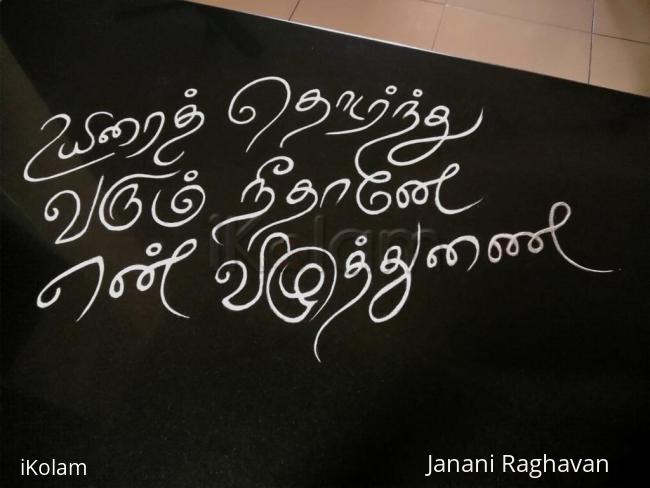 உயிரைத் தொடர்ந்து
வரும் நீதானே
என் விழித்துணை
iKolam
iKolam
Janani Raghavan